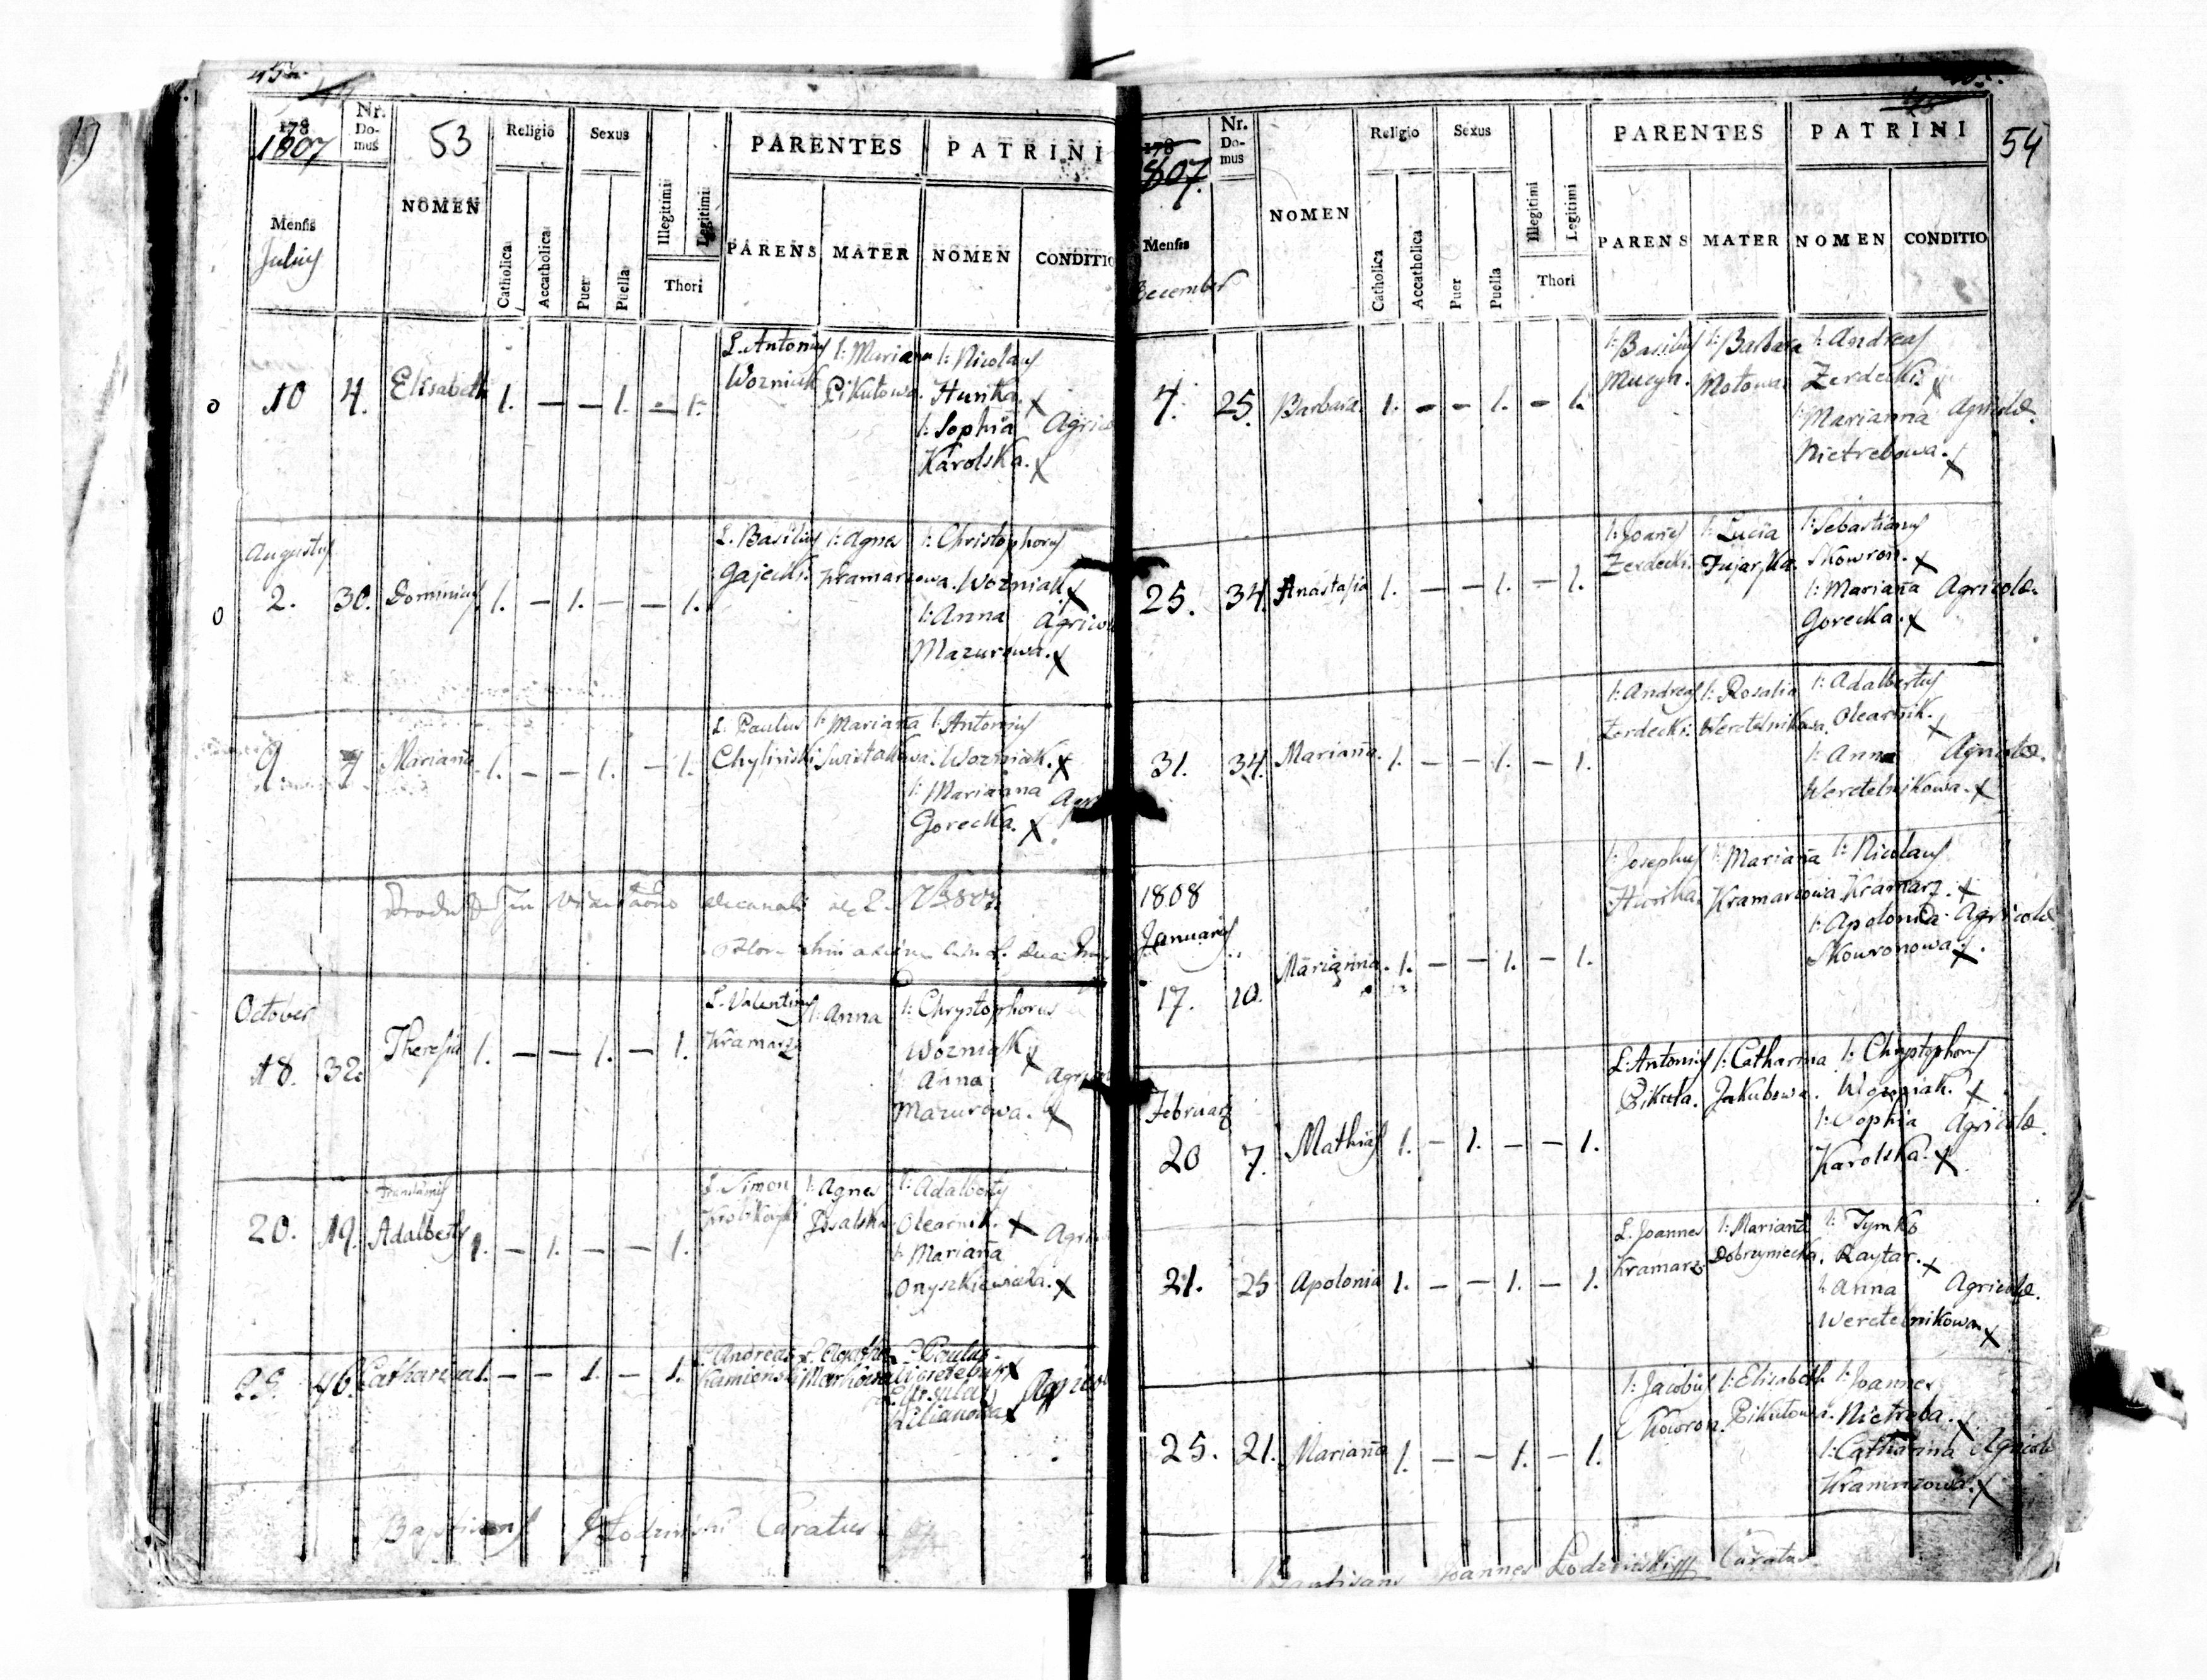 53
178
1807
Nr.
Do-
mus
Religio
Sexus
PARENTES
PATRINI
Mensis
Julius
NOMEN
Catholica
Accatholica
Puer
Puella
Illegitimi
Legitimi
Thori
PARENS
MATER
NOMEN
CONDITIO
10 4. Elisabeth 1. — — 1. — 1.
L. Antonius
Wozniak
l: Mariana
Pikutowa.
l: Nicolaus
Hunka. x
l: Sophia
Karolska. x
Agrico
Augustus
2. 30. Dominicus 1. — 1. — — 1.
L. Basilius
Gajecki.
l: Agnes
Kramarzowa.
l: Christophorus
Wozniak x
l: Anna
Mazurowa. x
Agricol
9. 7 Mariana 1. — — 1. — 1.
L. Paulus
Chyliński
l: Mariana
Swistakowa.
l: Antonius
Wozniak. x
l: Marianna
Gorecka. x
Agri
October
18. 32. Theresia 1. — — 1. — 1.
L. Valentinus
Kramarz
l: Anna
l: Chrystophorus
Wozniak x
l: Anna
Mazurowa. x
Agricol
20. 19. Adalbertus 1. — 1. — — 1.
L. Simon
l: Agnes
l: Adalbertus
Olearnik. x
l: Mariana
Onyszkiewicka. x
Agri
29. 46. Catharina 1. — — 1. — 1.
L. Andreas
Kamienski
L. Agatha
L. Paulus
Kilianowa x
Agricol
Baptisans J Lodzinski Curatus
54
178
1807.
Nr.
Do-
mus
Religio
Sexus
PARENTES
PATRINI
Mensis
December
NOMEN
Catholica
Accatholica
Puer
Puella
Illegitimi
Legitimi
Thori
PARENS
MATER
NOMEN
CONDITIO
7. 25. Barbara. 1. — — 1. — 1.
l: Basilius
Mucyn.
l: Barbara
Motowa.
l: Andreas
Zerdecki x
l: Marianna
Nietrebowa. x
Agricolæ.
25. 34. Anastasia 1. — — 1. — 1.
l: Joanes
Zerdecki.
l: Lucia
Fujarska.
l: Sebastianus
Skowron. x
l: Mariana
Gorecka. x
Agricolæ.
31. 34. Mariana. 1. — — 1. — 1.
l: Andreas
Zerdecki.
l: Rosalia
Weretelnikowa.
l: Adalbertus
Olearnik. x
l: Anna
Weretelnikowa. x
Agricolæ.
1808
Januarius
17. 10. Marianna. 1. — — 1. — 1.
l: Josephus
Hunka.
l: Mariana
Kramarzowa
l: Nicolaus
Kramarz. x
l: Apolonia
Skowronowa. x
Agricolæ
Februarz
20 7. Mathias 1. — 1. — — 1.
L. Antonius
Pikuta.
l: Catharina
Jakubowa.
l: Chrystophorus
Wozniak. x
l: Sophia
Karolska. x
Agricolæ.
21. 25 Apolonia 1. — — 1. — 1.
L. Joannes
Kramarz
l: Mariana
Dobrzyniecka.
l: Tymko
Raytar. x
l: Anna
Weretelnikowa x
Agricolæ.
25. 21. Mariana 1. — — 1. — 1.
l: Jacobus
Skowron.
l: Elisabeth
Pikutowa.
l: Joannes
Nietreba. x
l: Catharina
Kramrzowa. x
Agricolæ
Baptisans Joannes Lodzinski Curatus